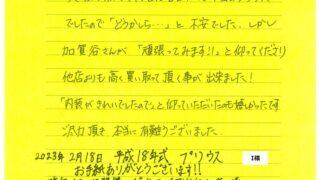 でしたので「どうかしら…」と不安でした。しかし
加賀谷さんが、「頑張ってみます!!」と仰ってくださり
他店よりも高く買い取って頂く事が出来ました!
「内装がきれいでしたので」と仰っていただいたのも嬉しかったです
頂き、本当に有難うございました。
2023年2月18日 平成18年式 プリウス
I様
お手紙ありがとうございます!!